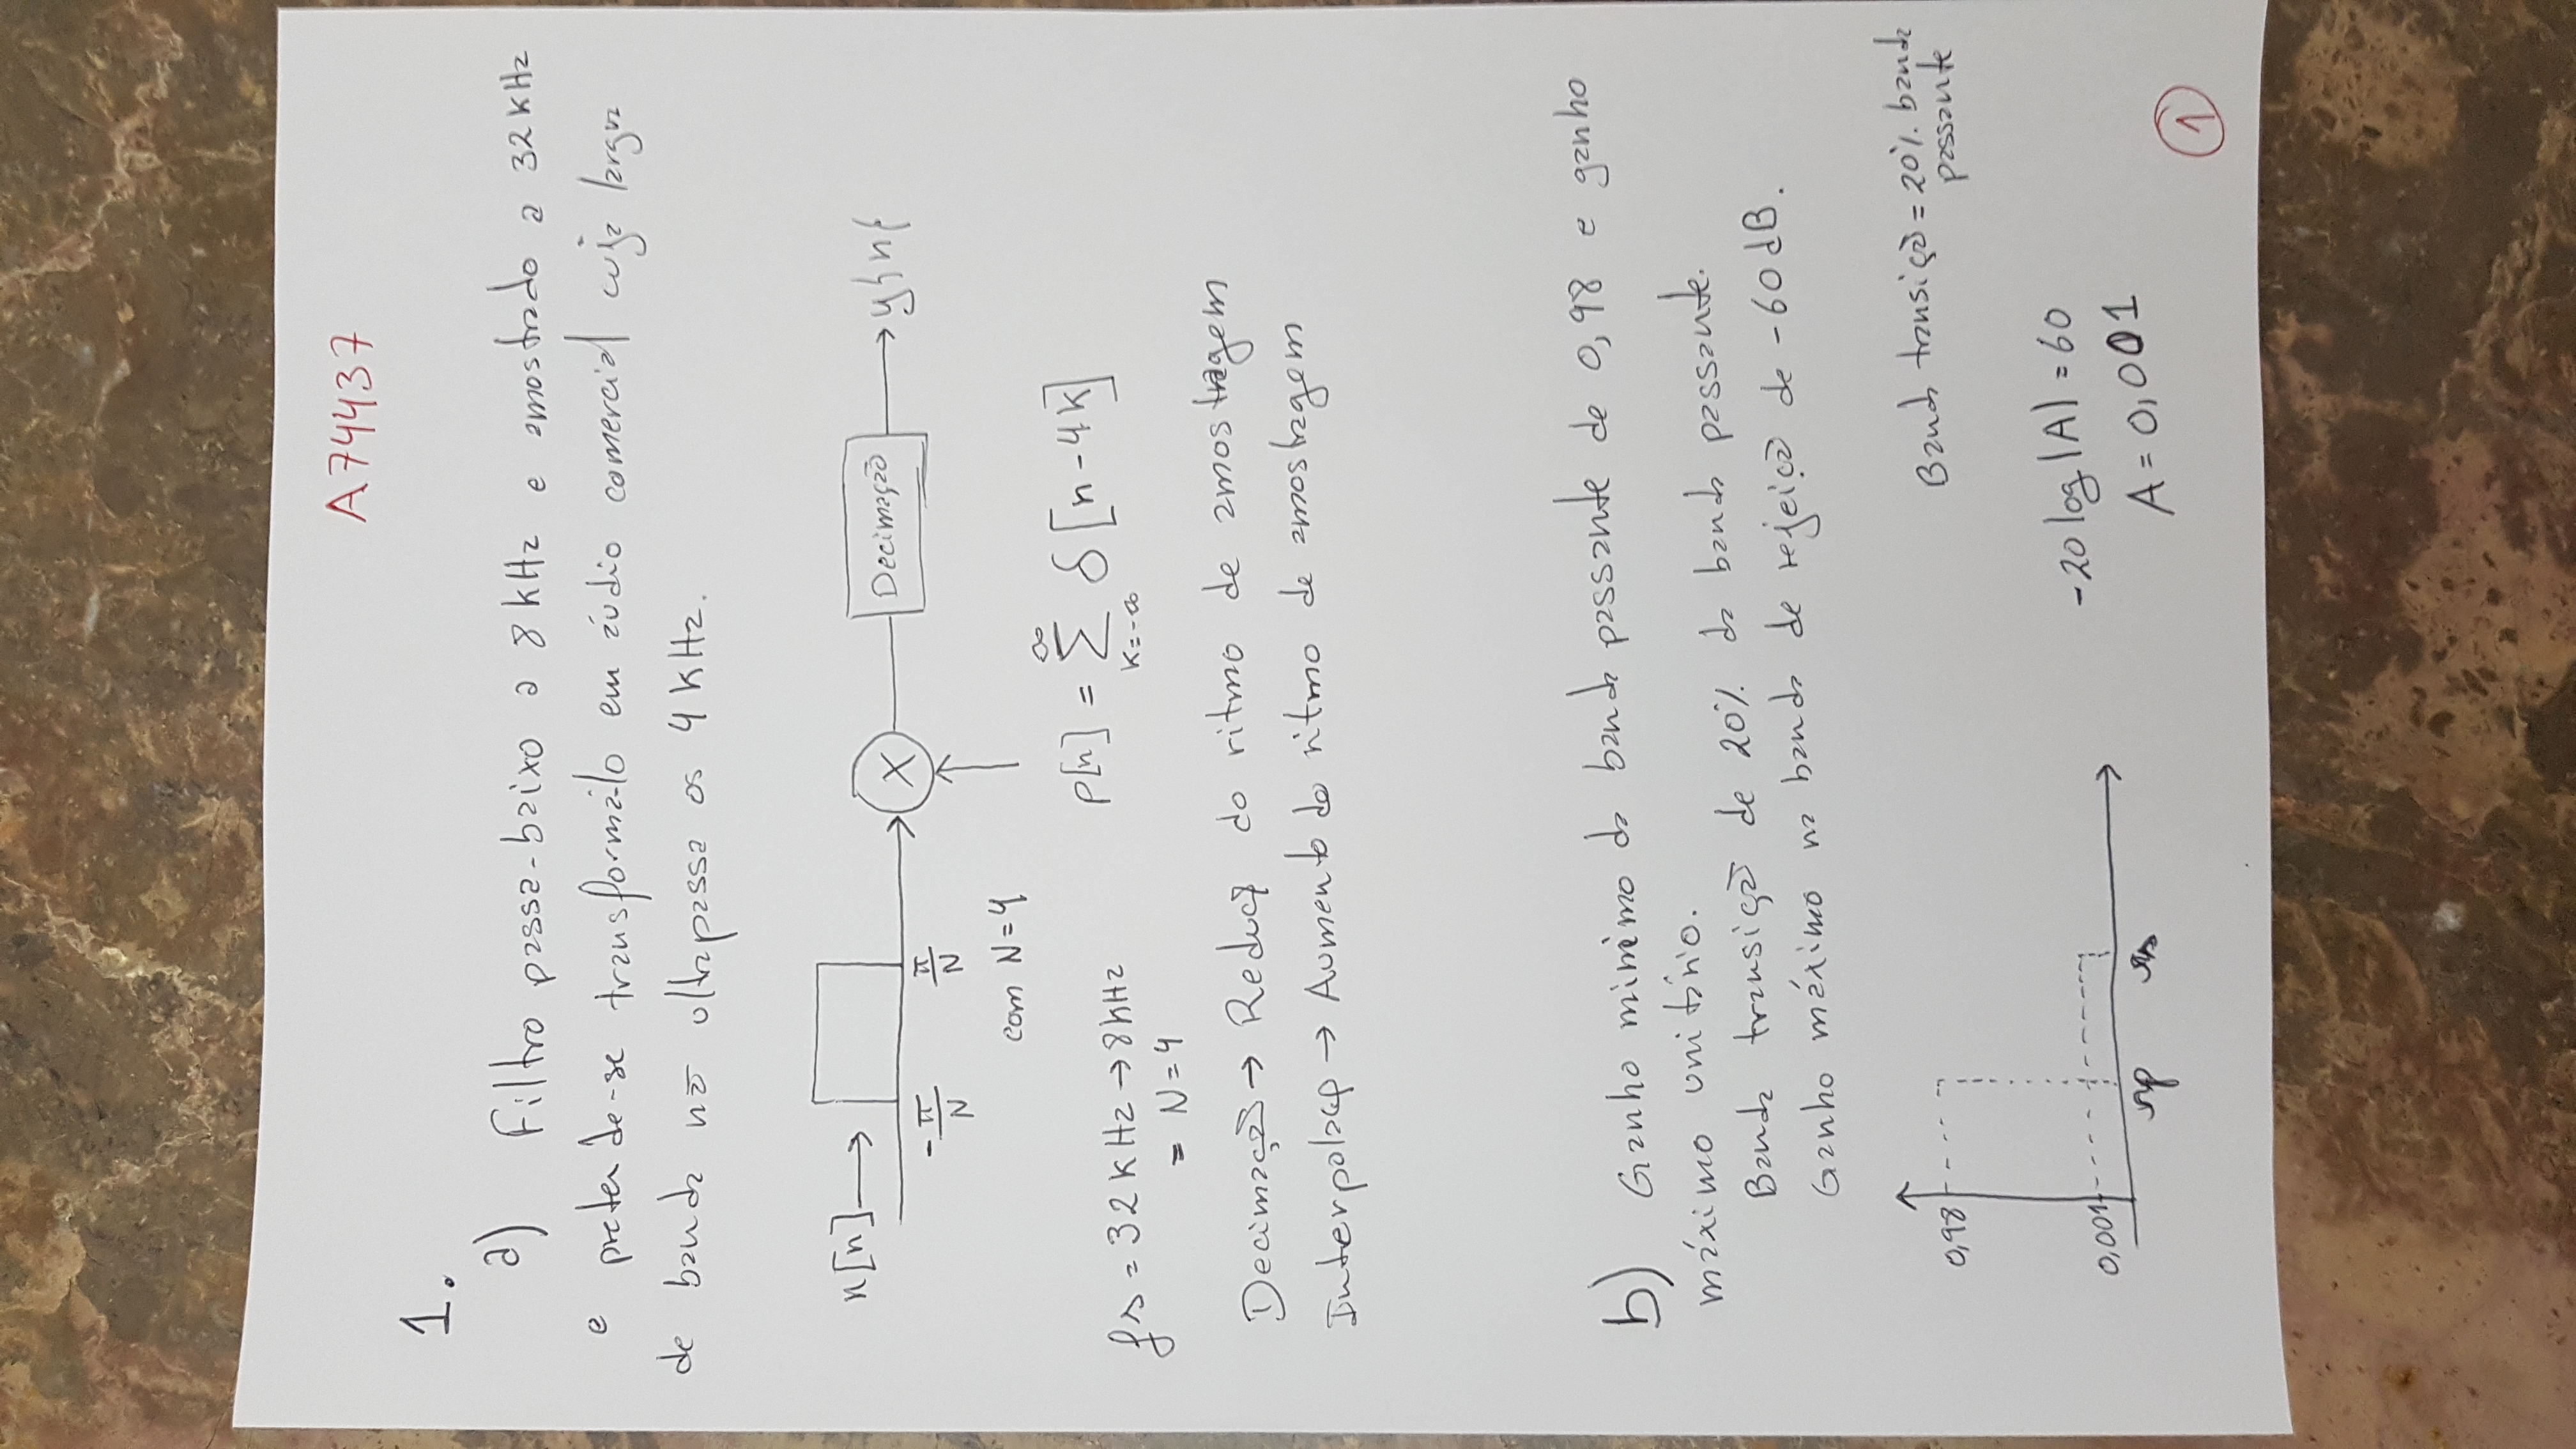 A74437
1.
a) Filtro passa-baixo a 8 kHz e amostrado a 32 kHz
e pretende-se transformá-lo em áudio comercial cuja largura
de banda não ultrapassa os 4 kHz.
x[n]
X
Decimação
y{n}
-π/N
π/N
com N=4
p[n] = ∑ δ[n-4k]
∞
k=-∞
fs = 32 kHz → 8kHz
= N=4
Decimação → Redução do ritmo de amostragem
Interpolação → Aumento do ritmo de amostragem
b) Ganho mínimo da banda passante de 0,98 e ganho
máximo unitário.
Banda transição de 20% da banda passante.
Ganho máximo na banda de rejeição de -60 dB.
Banda transição = 20% banda
passante
0,98
0,001
Ωp
Ωs
-20 log |A| = 60
A = 0,001
1